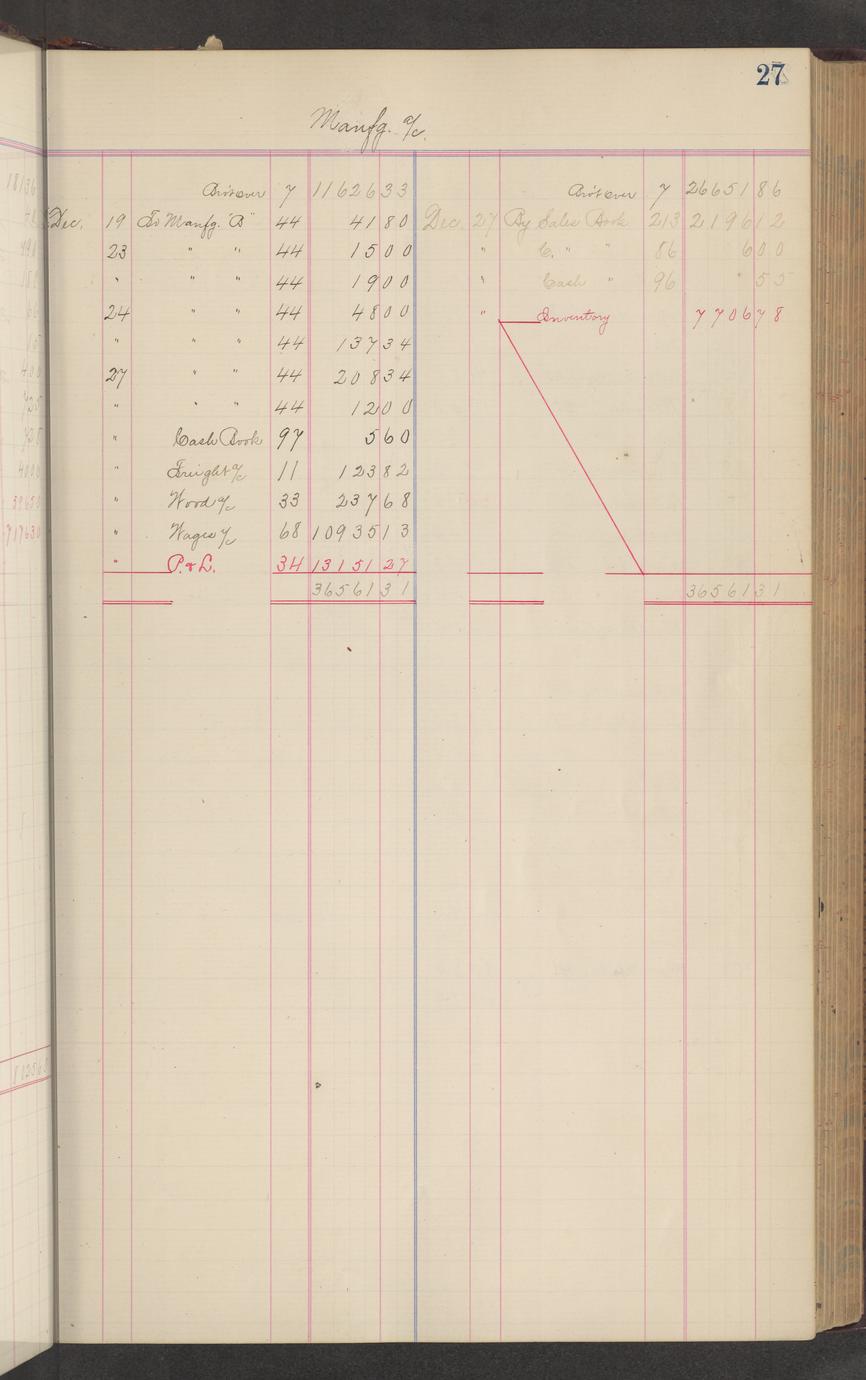 27
Manfg. a/c.
Bro't over 7 11626 33 Bro't over 7 26651 86
Dec. 19 To Manfg. "B" 44 41 80 Dec. 27 By Sales Book 213 2196 12
23 " " 44 15 00 " C. " " 86 6 00
" " " 44 19 00 " Cash " 96 " 55
24 " " 44 48 00 " Inventory 7706 78
" " " 44 137 34
27 " " 44 208 34
" " " 44 12 00
" Cash Book 97 5 60
" Freight a/c 11 123 82
" Wood a/c 33 237 68
" Wages a/c 68 10935 13
" P. & L. 34 13151 27
36561 31 36561 31